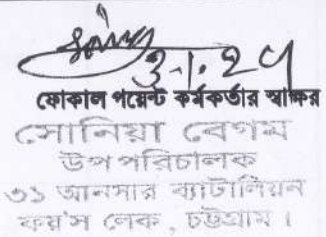 ফোকাল পয়েন্ট কর্মকর্তার স্বাক্ষর
সোনিয়া বেগম
উপ পরিচালক
৩১ আনসার ব্যাটালিয়ন
ফয়'স লেক, চট্টগ্রাম।